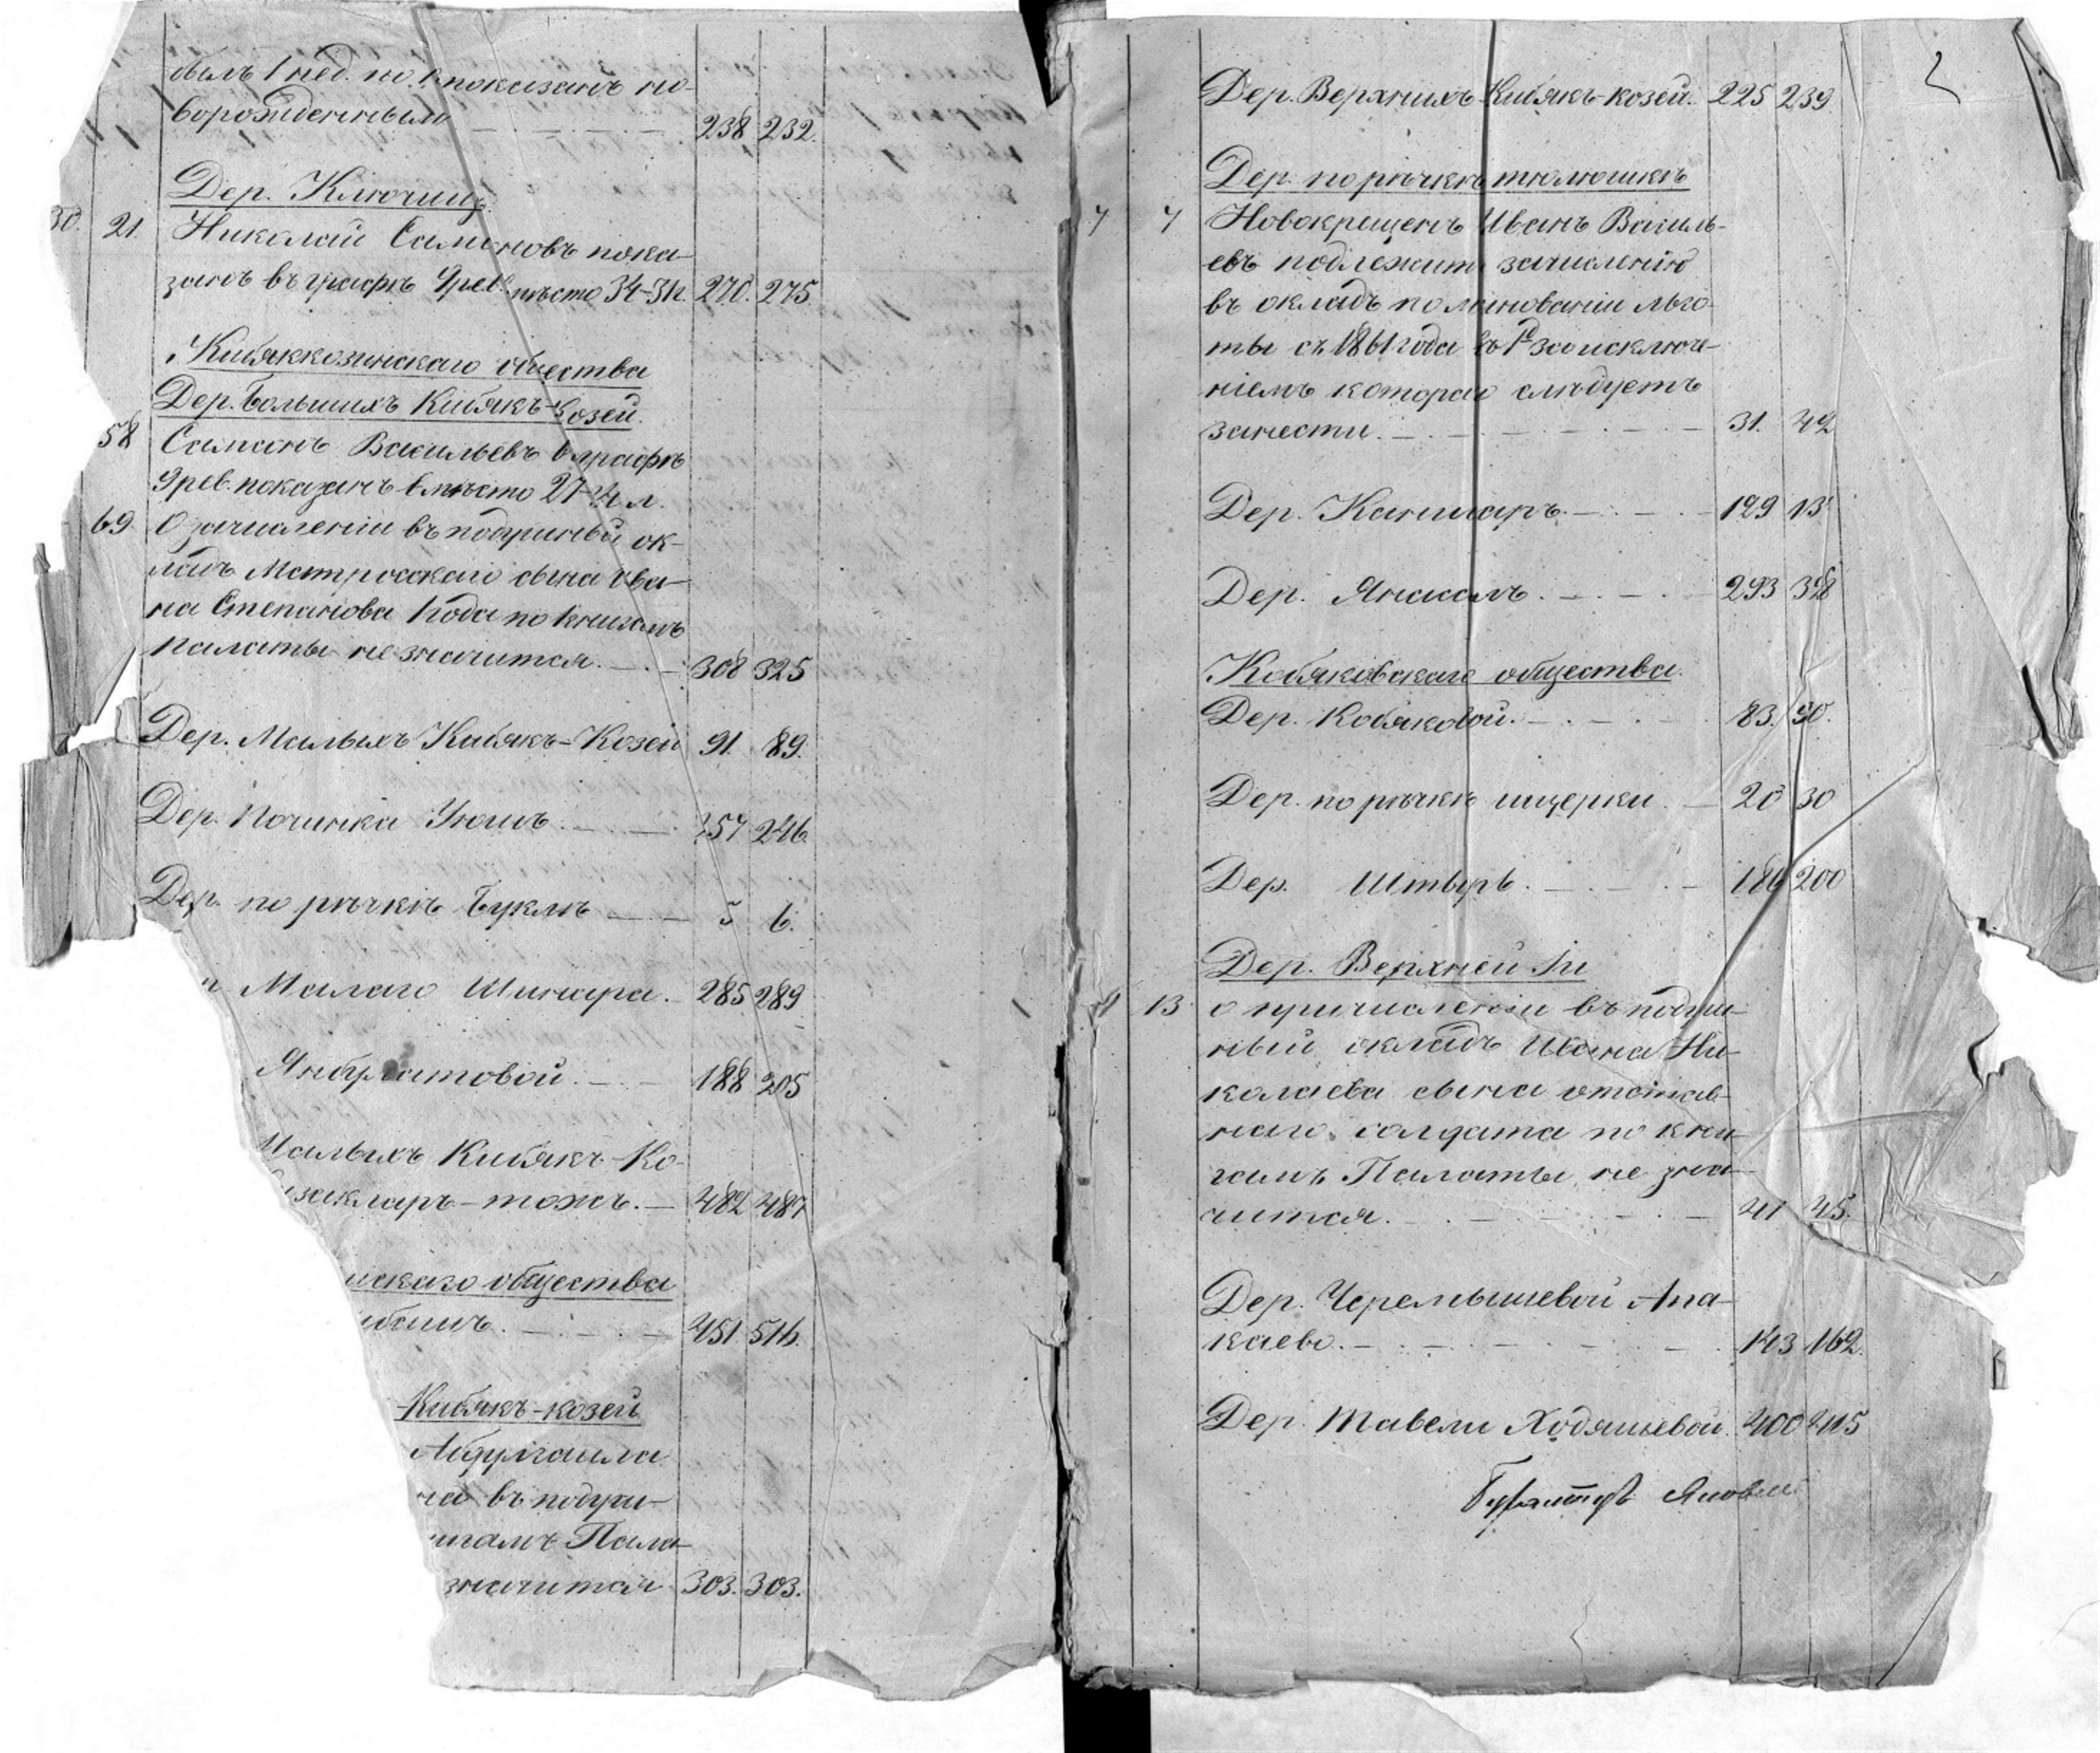 былъ 1 нед. но показанъ но-
ворожденнымъ 238 232.
Дер. Ключищ
30. 21. Николай Самоновъ пока-
занъ въ графѣ 9 рев. вмѣсто 34-31. 270. 275
Кибяккозинскаго общества
Дер. Большихъ Кибякъ-Козей.
58 Самонъ Васильевъ в графѣ
9 рев. показанъ вмѣсто 27-
69 О зачисленіи въ подушный ок-
ладъ Матросскаго сына Ива-
на Степанова 1 года по книгамъ
палаты не значится. 308 325
Дер. Малыхъ Кибякъ-Козей 91. 89.
Дер. Починка 257 246.
Дер. по рѣчкѣ Буклѣ 5 6.
Малаго Шинара. 285. 289
Янбулатовой. 188 205
Малыхъ Кибякъ-Ко-
тожъ. 482 487
нскаго общества
451. 516.
Кибякъ-козей
Абдул
на въ подуш-
игамъ Пала-
значится 303. 303.
Дер. Верхнихъ Кибякъ-козей. 225 239.
Дер. по рѣчкѣ тюлюшкѣ
7 7 Новокрещенъ Иванъ Василь-
евъ подлежитъ зачисленію
въ окладъ по минованіи льго-
ты съ 1861 года за исключе-
ніемъ котораго слѣдуетъ
занести. 31. 42
Дер. Каншаръ. 129 13
Дер. Янасалъ. 293 318
Кобяковскаго общества.
Дер. Кобяковой. 83. 90.
Дер. по рѣчкѣ ищерки. 20 30
Дер. Штырь. 186 200
Дер. Верхней
13 о причисленіи въ подуш-
ный окладъ Ивана Ни-
колаева сына отстав-
наго солдата по кни-
гамъ Палаты не зна-
чится. 41 45.
Дер. Черемышевой Апа-
каево. 143 162.
Дер. Тавели Ходяшевой. 400 415
Бухгалтеръ Яковлев